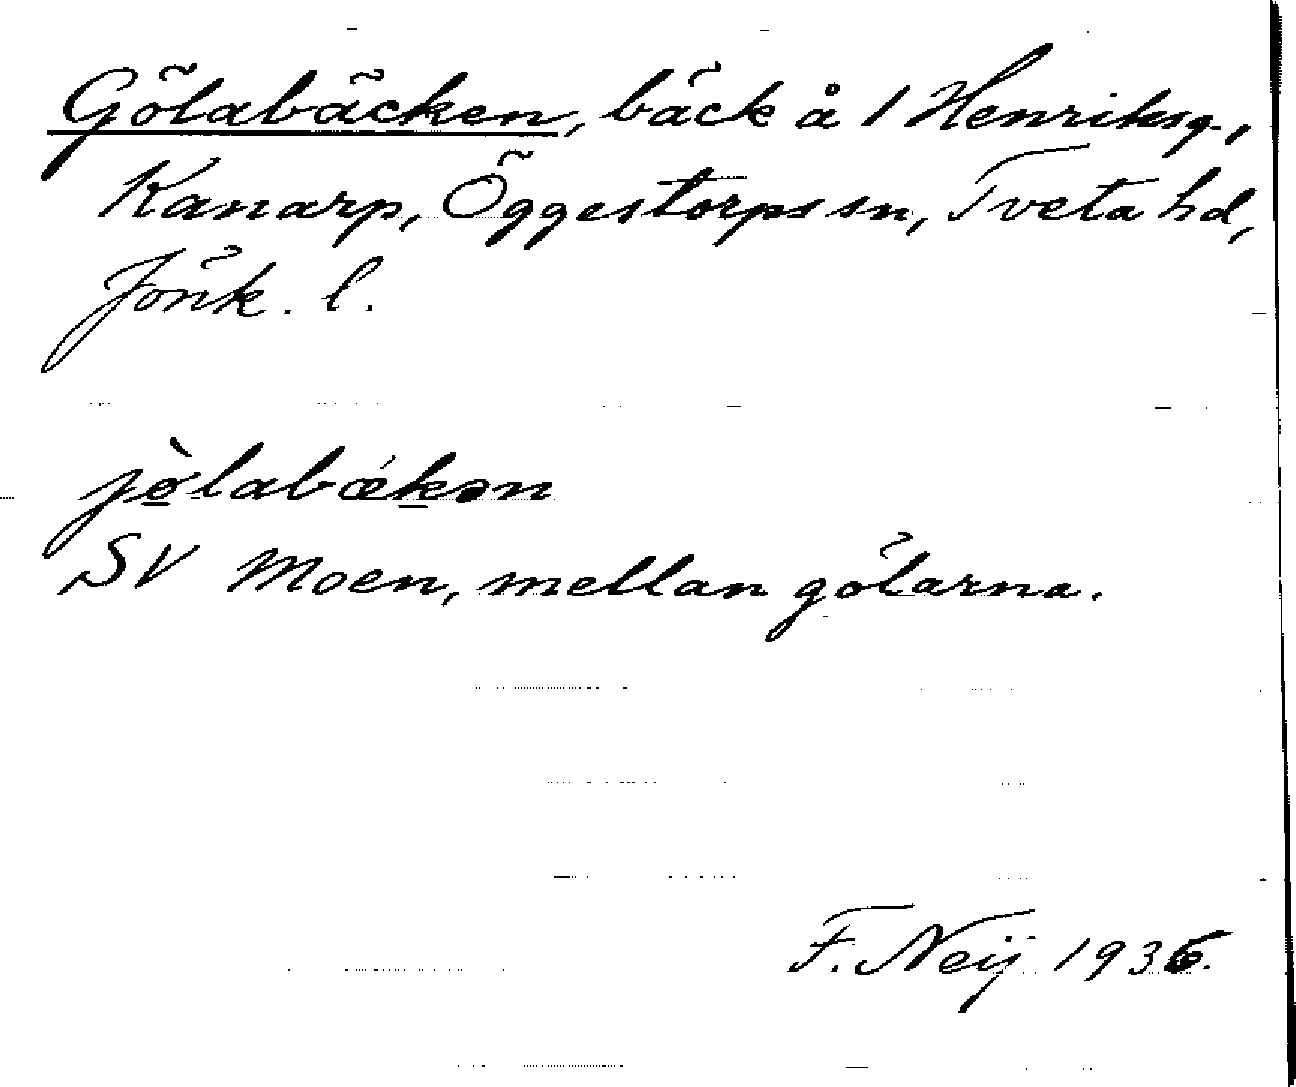 Gölabäcken, bäck å 1 Henriksg.,
Kanarp, Öggestorps sn, Tveta hd,
Jönk. l.
jö̀labǽkən
SV Moen, mellan gölarna.
F. Neij 1936.